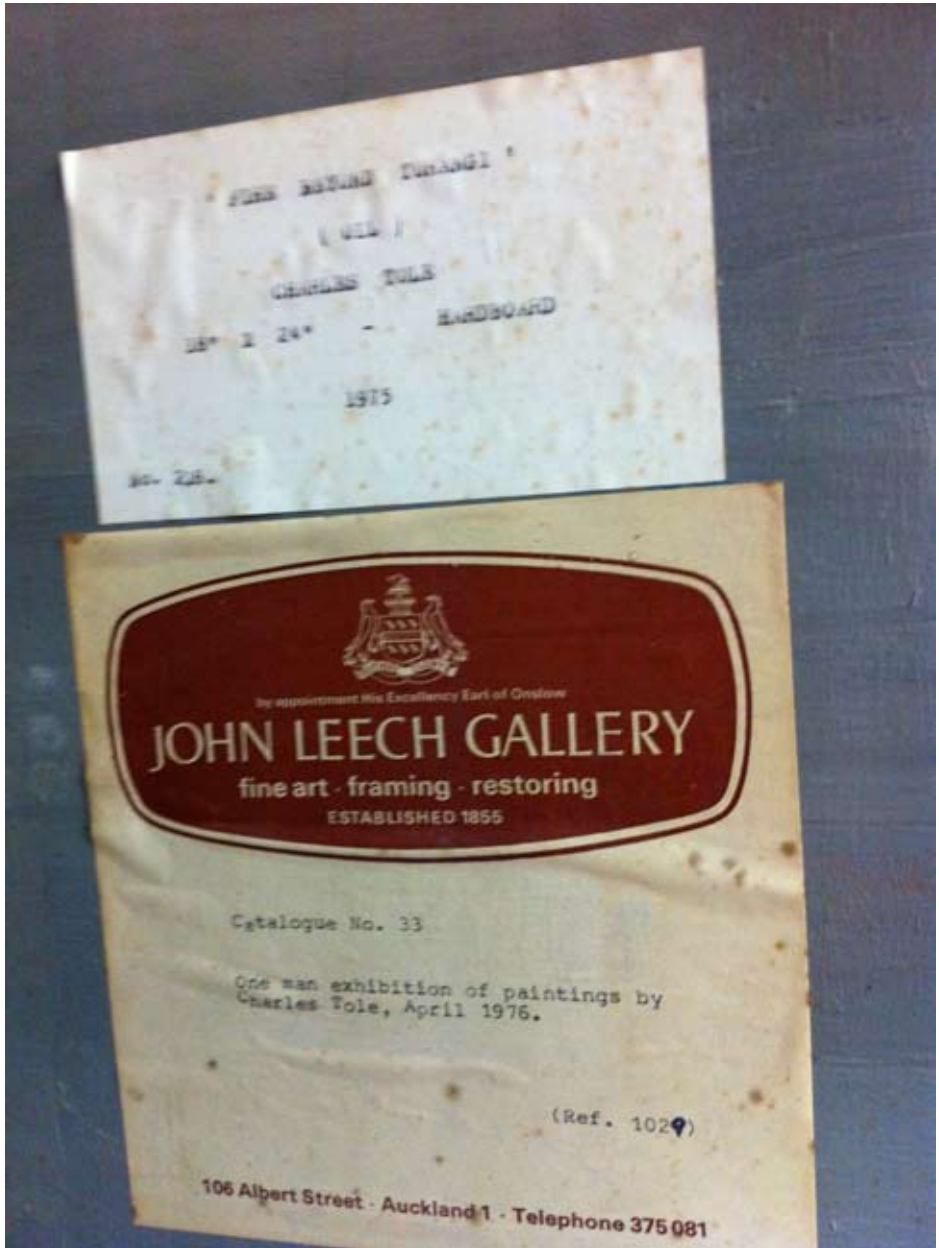 ' TURANGI '
( OIL )
CHARLES TOLE
18" X 24" - HARDBOARD
1975
No.
by appointment His Excellency Earl of Onslow
JOHN LEECH GALLERY
fine art · framing · restoring
ESTABLISHED 1855
Catalogue No. 33
One man exhibition of paintings by
Charles Tole, April 1976.
(Ref. 1029)
106 Albert Street · Auckland 1 · Telephone 375 081